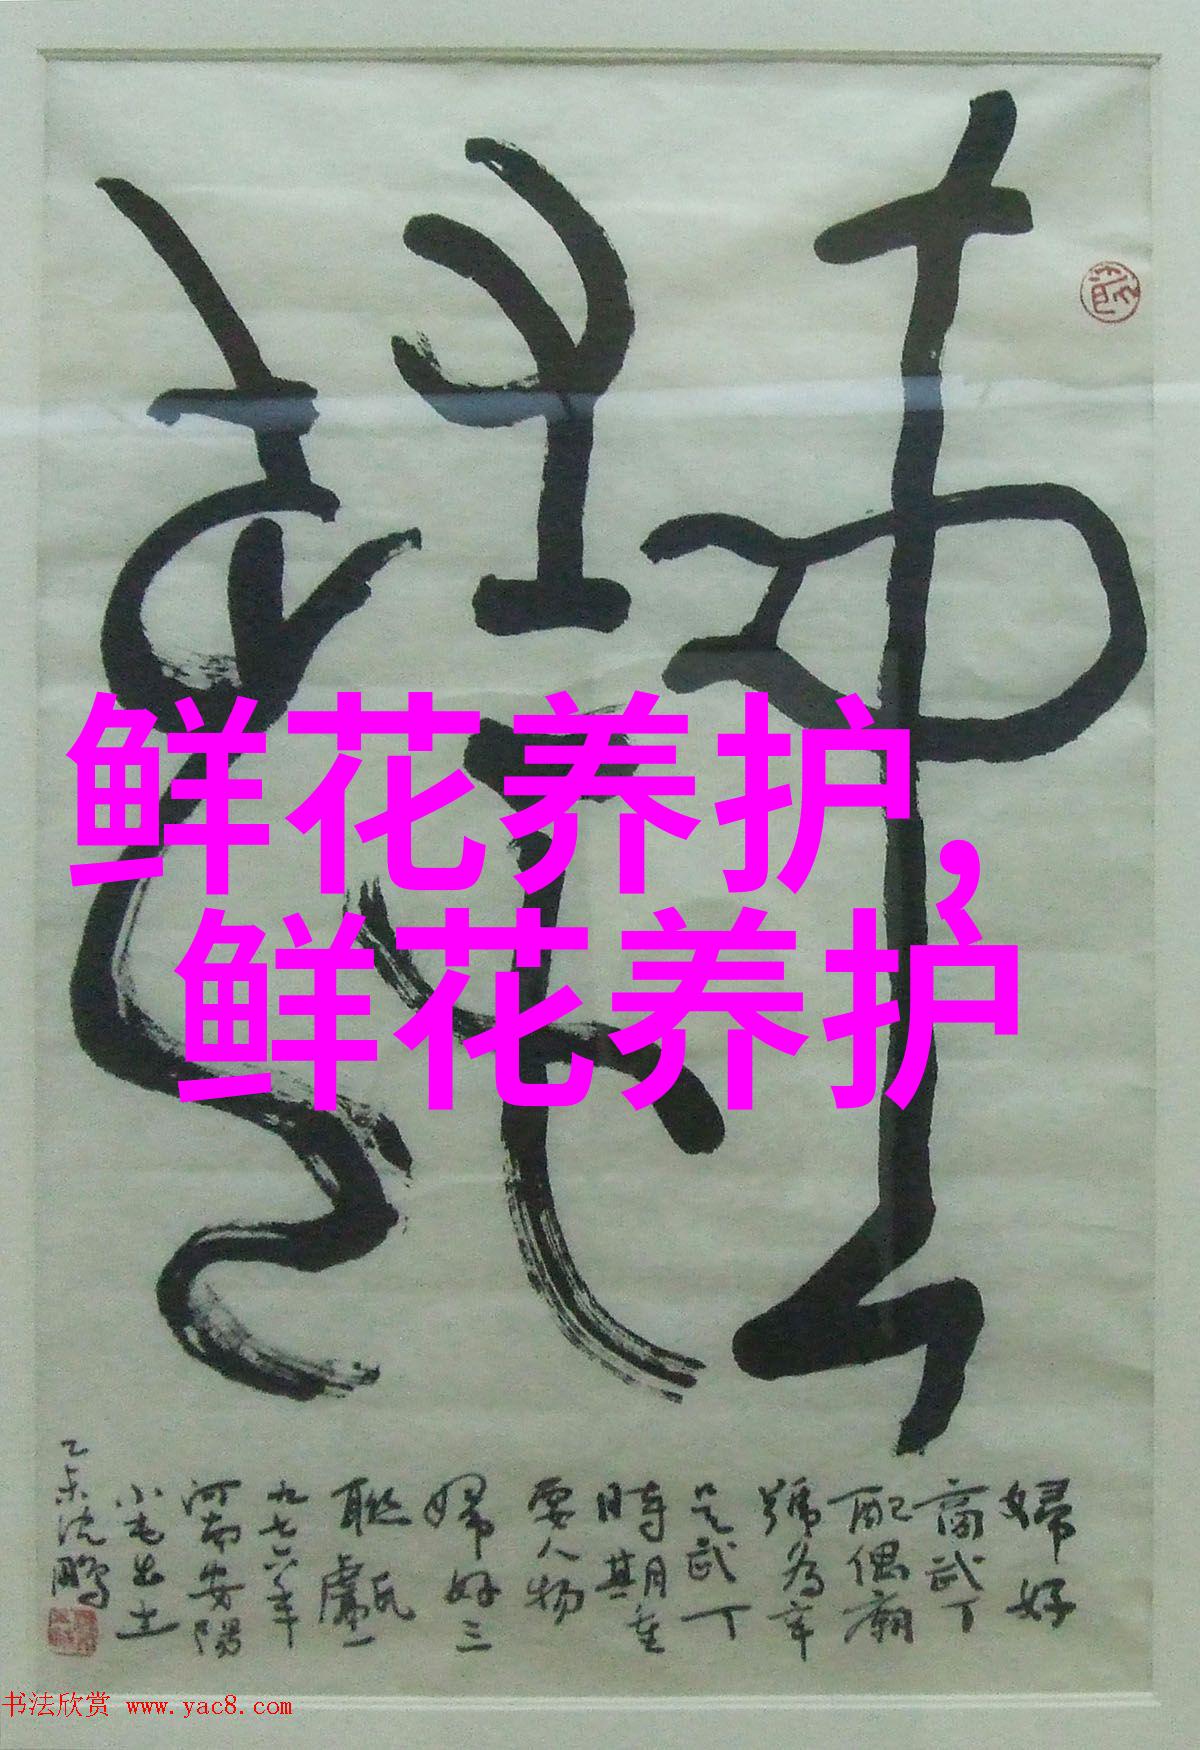 鲜花养护,
鲜花养护
婦好
商武丁
配偶廟
號为辛
是武丁
時期重
要人物
婦好三
聯甗一
九七六年
河南安陽
小屯出土
乙未沈鹏
书法欣赏 www.yac8.com